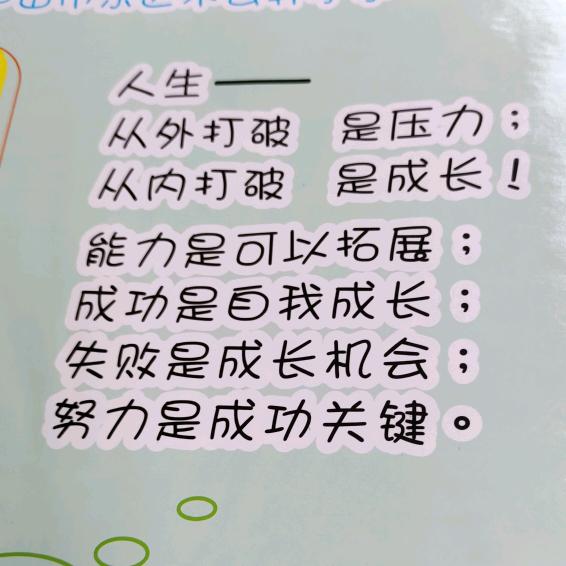 人生——
从外打破 是压力；
从内打破 是成长！
能力是可以拓展；
成功是自我成长；
失败是成长机会；
努力是成功关键。